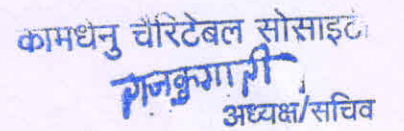 कामधेनु चैरिटेबल सोसाइटी
राजकुमारी
अध्यक्ष/सचिव